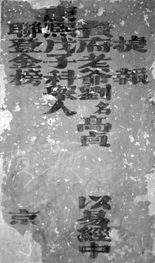 捷報
貴府老爺劉名高 以易經中
戊子科舉人
聯登金榜 京